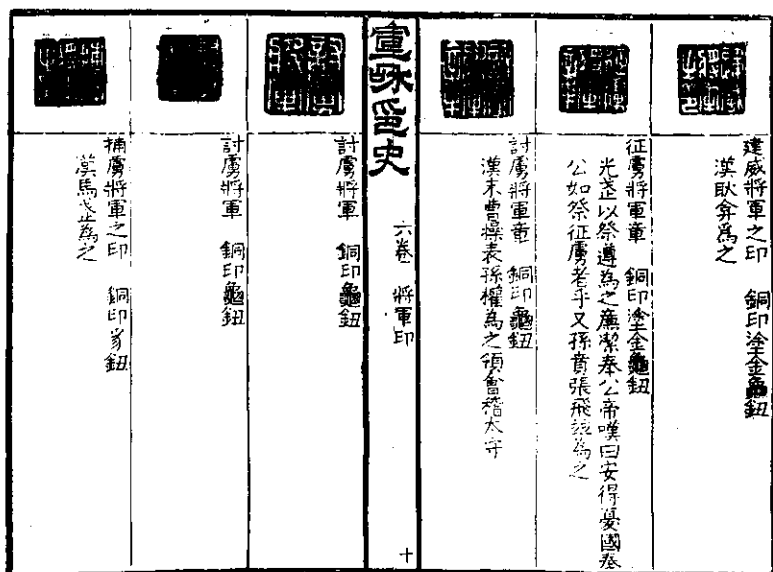 建威將軍之印　銅印塗金龜鈕
漢耿弇爲之
征虜將軍章　銅印塗金龜鈕
光武以祭遵為之廉潔奉公帝嘆曰安得憂國奉
公如祭征虜者乎又孫賁張飛並為之
討虜將軍章　銅印龜鈕
漢末曹操表孫權為之領會稽太守
宣龢印史
六卷　將軍印
十
討虜將軍　銅印龜鈕
討虜將軍　銅印龜鈕
捕虜將軍之印　銅印鈕
漢馬武為之